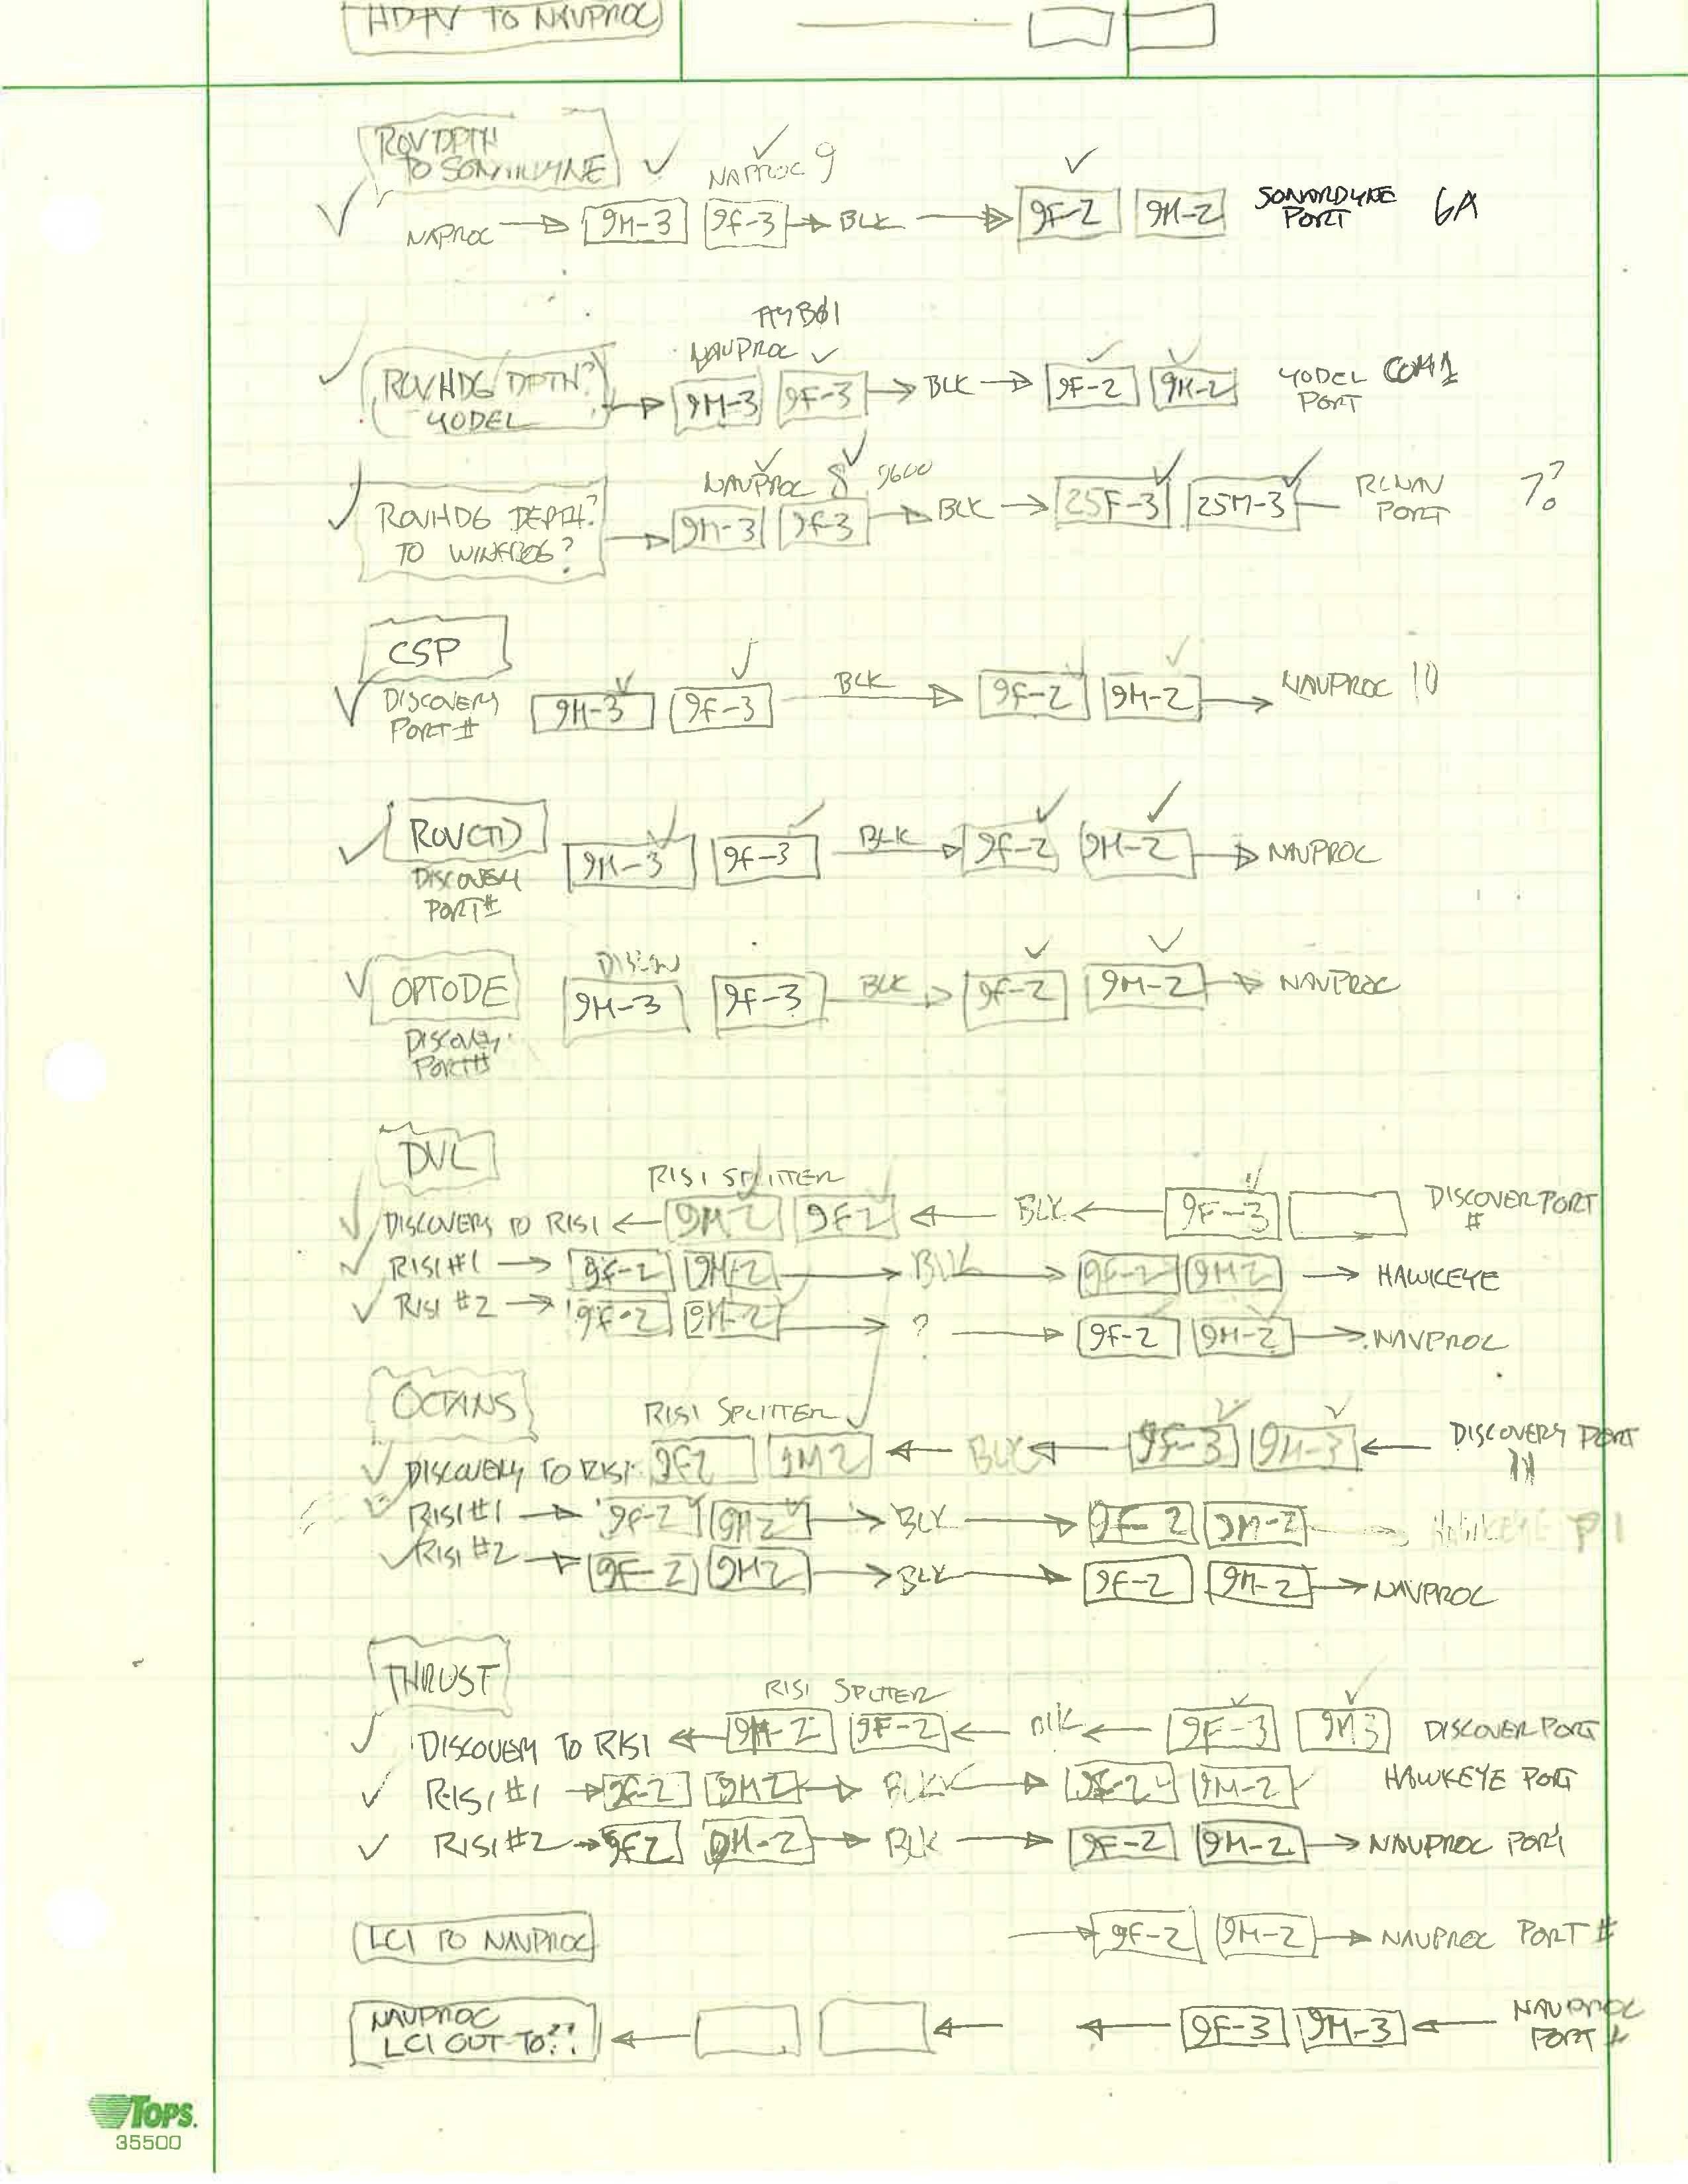 HDTV TO NAVPROC
ROV DPTH
TO SONARDYNE
NAPROC 9
NAPROC 9M-3 9F-3 BLK 9F-2 9M-2 SONARDYNE PORT 6A
NAVPROC
ROVHDG/DPTH?
YODEL
9M-3 9F-3 BLK 9F-2 9M-2 YODEL PORT COM1
NAVPROC 8 9600
ROVHDG DEPTH?
TO WINFROG?
9M-3 9F-3 BLK 25F-3 25M-3 PORT 7?
CSP
DISCOVERY
PORT #
9M-3 9F-3 BLK 9F-2 9M-2 NAVPROC 10
ROVCTD
DISCOVERY
PORT #
9M-3 9F-3 BLK 9F-2 9M-2 NAVPROC
OPTODE
DISCOVERY
PORT #
9M-3 9F-3 BLK 9F-2 9M-2 NAVPROC
DVL
RISI SPLITTER
DISCOVERY TO RISI 9M2 9F2 BLK 9F-3 DISCOVER PORT #
RISI #1 9F-2 9M-2 BLK 9F-2 9M2 HAWKEYE
RISI #2 9F-2 9M-2 ? 9F-2 9M-2 NAVPROC
OCTANS
RISI SPLITTER
DISCOVERY TO RISI 9F2 9M2 BLK 9F-3 9M-3 DISCOVERY PORT
RISI #1 9F-2 9M2 BLK 9F-2 9M-2 HAWKEYE P1
RISI #2 9F-2 9M2 BLK 9F-2 9M-2 NAVPROC
THRUST
RISI SPLITTER
DISCOVERY TO RISI 9M-2 9F-2 BLK 9F-3 9M3 DISCOVER PORT
RISI #1 9F-2 9M2 BLK 9F-2 9M-2 HAWKEYE PORT
RISI #2 9F2 9M-2 BLK 9F-2 9M-2 NAVPROC PORT
LCI TO NAVPROC 9F-2 9M-2 NAVPROC PORT #
NAVPROC
LCI OUT TO??
9F-3 9M-3 NAVPROC PORT #
TOPS.
35500